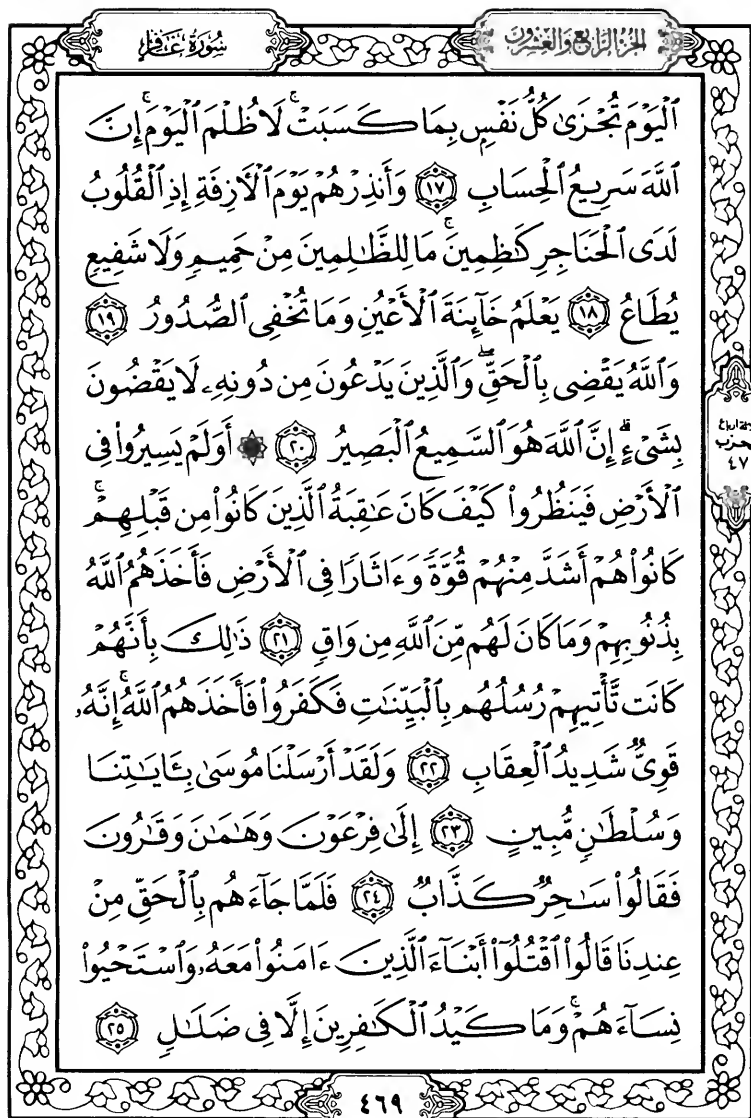 الجزء الرابع والعشرون
سُورَةُ غَافِرٍ
ٱلْيَوْمَ تُجْزَىٰ كُلُّ نَفْسٍۭ بِمَا كَسَبَتْ ۚ لَا ظُلْمَ ٱلْيَوْمَ ۚ إِنَّ
ٱللَّهَ سَرِيعُ ٱلْحِسَابِ ١٧ وَأَنذِرْهُمْ يَوْمَ ٱلْءَازِفَةِ إِذِ ٱلْقُلُوبُ
لَدَى ٱلْحَنَاجِرِ كَٰظِمِينَ ۚ مَا لِلظَّٰلِمِينَ مِنْ حَمِيمٍ وَلَا شَفِيعٍ
يُطَاعُ ١٨ يَعْلَمُ خَآئِنَةَ ٱلْأَعْيُنِ وَمَا تُخْفِى ٱلصُّدُورُ ١٩
وَٱللَّهُ يَقْضِى بِٱلْحَقِّ ۖ وَٱلَّذِينَ يَدْعُونَ مِن دُونِهِۦ لَا يَقْضُونَ
بِشَىْءٍ ۗ إِنَّ ٱللَّهَ هُوَ ٱلسَّمِيعُ ٱلْبَصِيرُ ٢٠ ۞ أَوَلَمْ يَسِيرُوا۟ فِى
ٱلْأَرْضِ فَيَنظُرُوا۟ كَيْفَ كَانَ عَٰقِبَةُ ٱلَّذِينَ كَانُوا۟ مِن قَبْلِهِمْ ۚ
كَانُوا۟ هُمْ أَشَدَّ مِنْهُمْ قُوَّةً وَءَاثَارًا فِى ٱلْأَرْضِ فَأَخَذَهُمُ ٱللَّهُ
بِذُنُوبِهِمْ وَمَا كَانَ لَهُم مِّنَ ٱللَّهِ مِن وَاقٍ ٢١ ذَٰلِكَ بِأَنَّهُمْ
كَانَت تَّأْتِيهِمْ رُسُلُهُم بِٱلْبَيِّنَٰتِ فَكَفَرُوا۟ فَأَخَذَهُمُ ٱللَّهُ ۚ إِنَّهُۥ
قَوِىٌّ شَدِيدُ ٱلْعِقَابِ ٢٢ وَلَقَدْ أَرْسَلْنَا مُوسَىٰ بِـَٔايَٰتِنَا
وَسُلْطَٰنٍ مُّبِينٍ ٢٣ إِلَىٰ فِرْعَوْنَ وَهَٰمَٰنَ وَقَٰرُونَ
فَقَالُوا۟ سَٰحِرٌ كَذَّابٌ ٢٤ فَلَمَّا جَآءَهُم بِٱلْحَقِّ مِنْ
عِندِنَا قَالُوا۟ ٱقْتُلُوٓا۟ أَبْنَآءَ ٱلَّذِينَ ءَامَنُوا۟ مَعَهُۥ وَٱسْتَحْيُوا۟
نِسَآءَهُمْ ۚ وَمَا كَيْدُ ٱلْكَٰفِرِينَ إِلَّا فِى ضَلَٰلٍ ٢٥
حزب
٤٧
٤٦٩